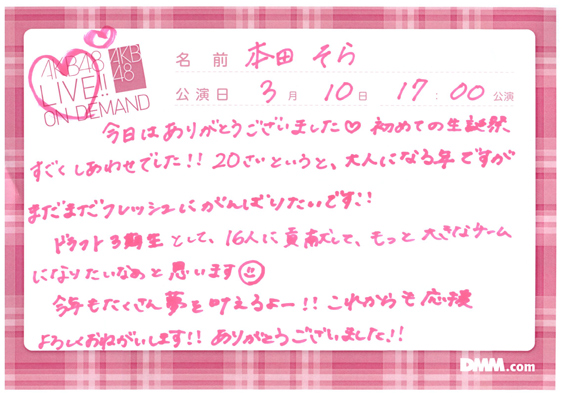 AKB48
LIVE!!
ON DEMAND
AKB
48
名前 本田 そら
公演日 3月 10日 17:00公演
今日はありがとうございました♡ 初めての生誕祭
すごくしあわせでした!! 20さいというと、大人になる年ですが
まだまだフレッシュにがんばりたいです!!
ドラフト3期生として、16人に貢献して、もっと大きなチーム
になりたいなぁと思います☺
今年もたくさん夢を叶えるよー!! これからも応援
よろしくおねがいします!! ありがとうございました!!
DMM.com